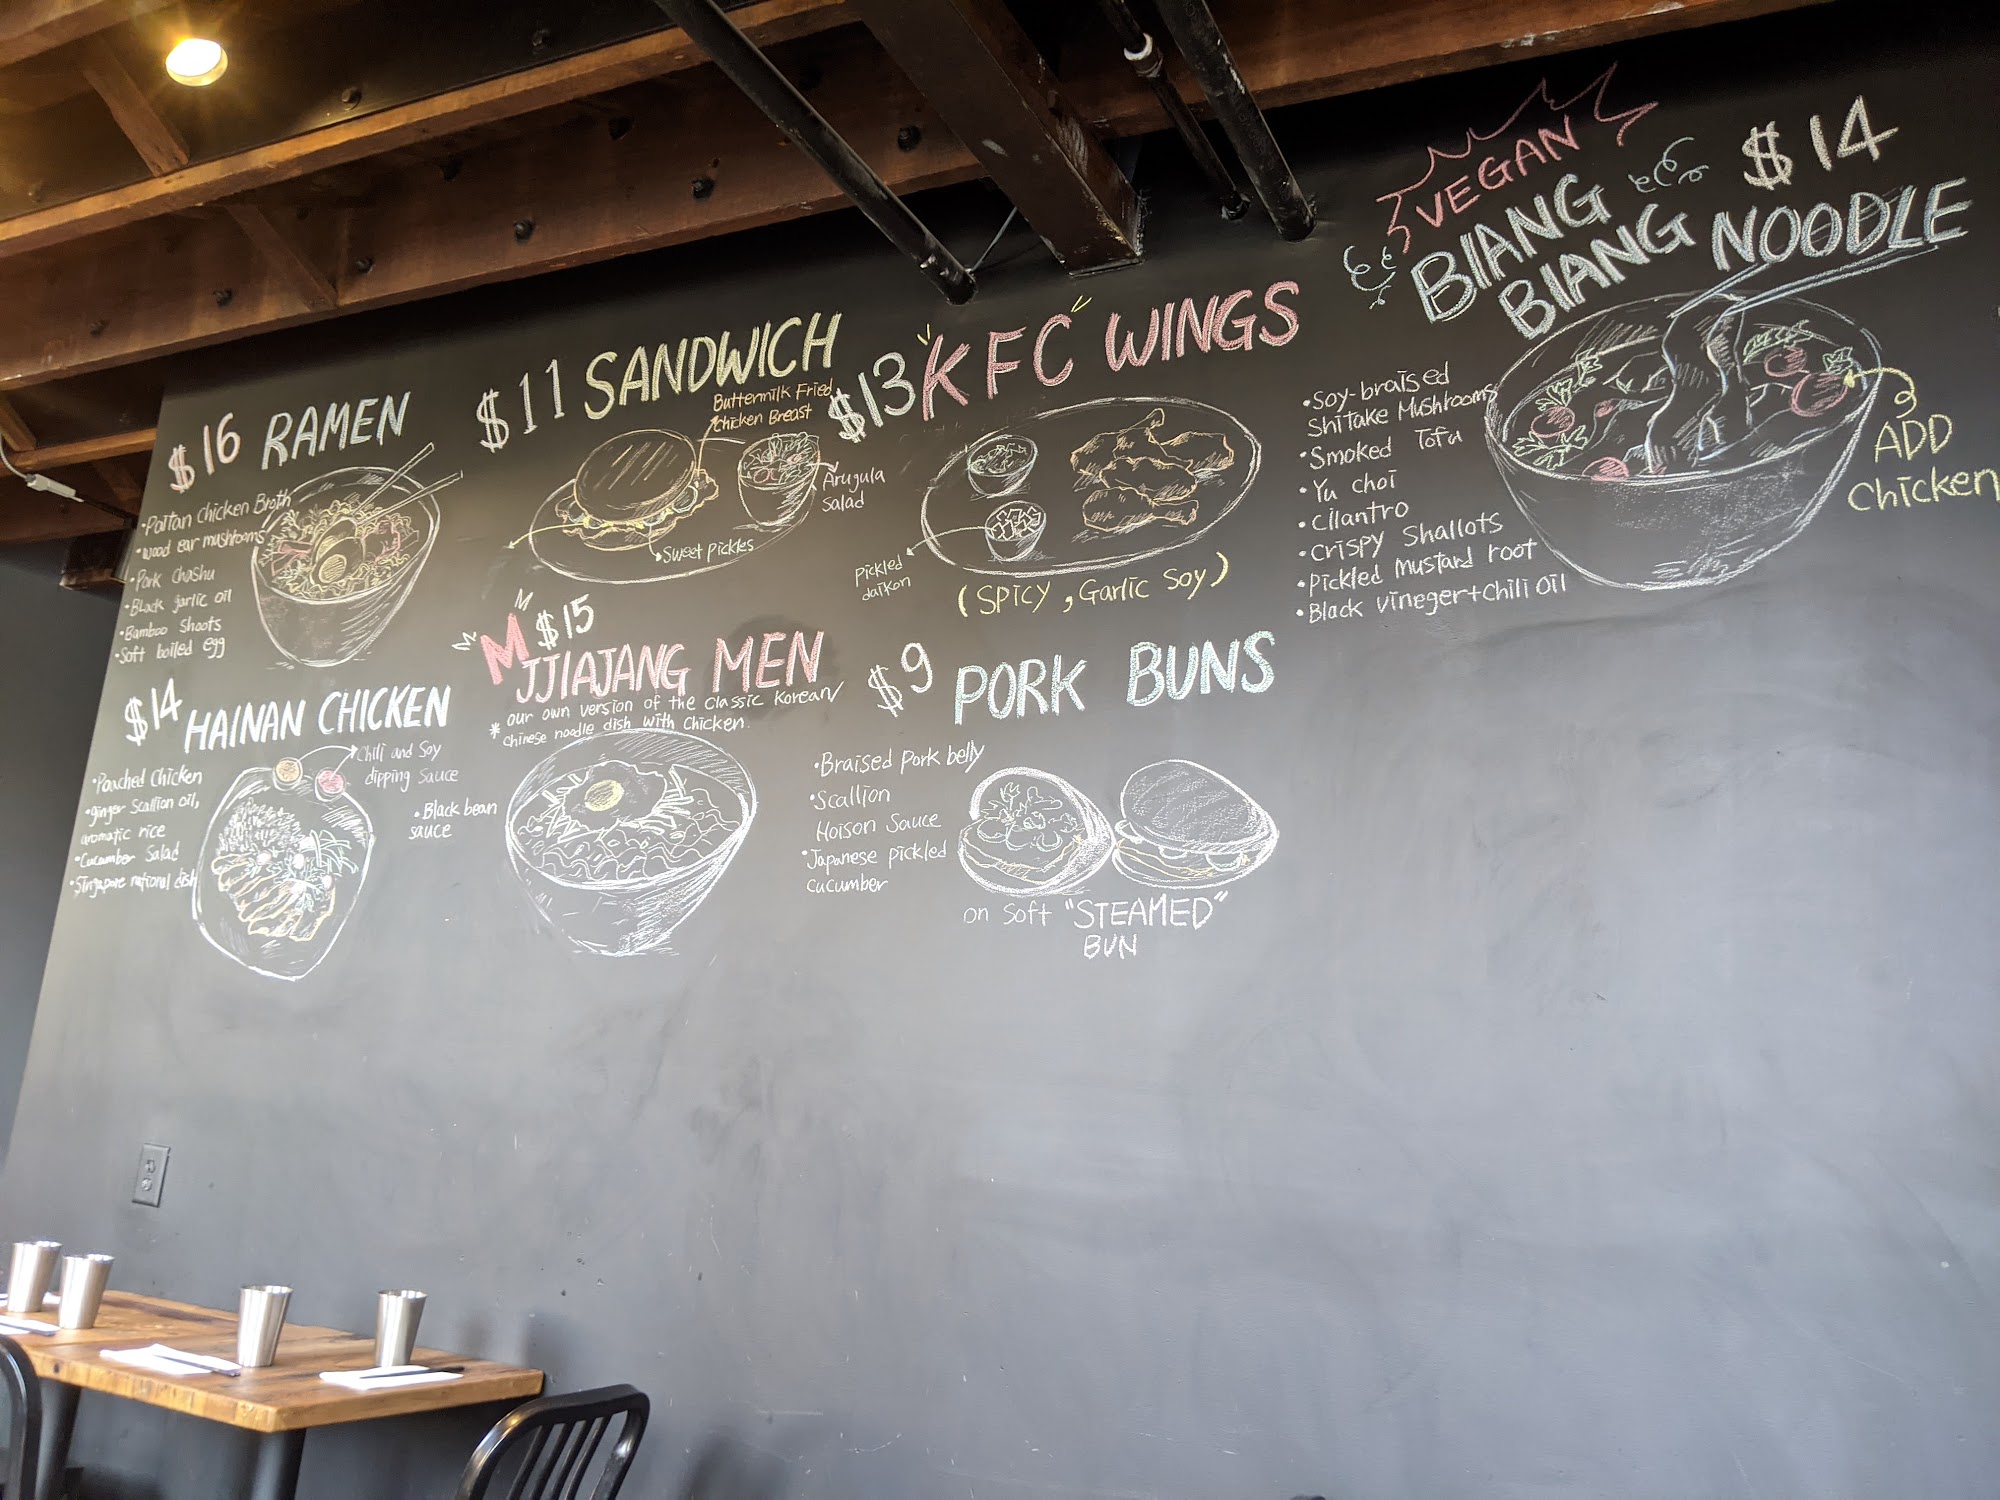 $16 RAMEN
• Paitan Chicken Broth
• wood ear mushrooms
• Pork Chashu
• Black garlic oil
• Bamboo Shoots
• Soft boiled egg
$11 SANDWICH
Buttermilk Fried
Chicken Breast
Arugula
Salad
Sweet pickles
$13 "KFC" WINGS
Pickled
daikon
(SPICY, Garlic Soy)
VEGAN
$14
BIANG
BIANG NOODLE
• Soy-braised
Shitake Mushrooms
• Smoked Tofu
• Yu choi
• cilantro
• crispy Shallots
• Pickled mustard root
• Black vineger+chili oil
ADD
Chicken
$14 HAINAN CHICKEN
• Poached Chicken
• ginger Scallion oil,
aromatic rice
• Cucumber Salad
• Singapore national dish
Chili and Soy
dipping sauce
M $15
M
JJIAJANG MEN
* our own version of the classic Korean/
chinese noodle dish with chicken.
• Black bean
sauce
$9 PORK BUNS
• Braised Pork belly
• Scallion
Hoison Sauce
• Japanese pickled
cucumber
on soft "STEAMED"
BUN